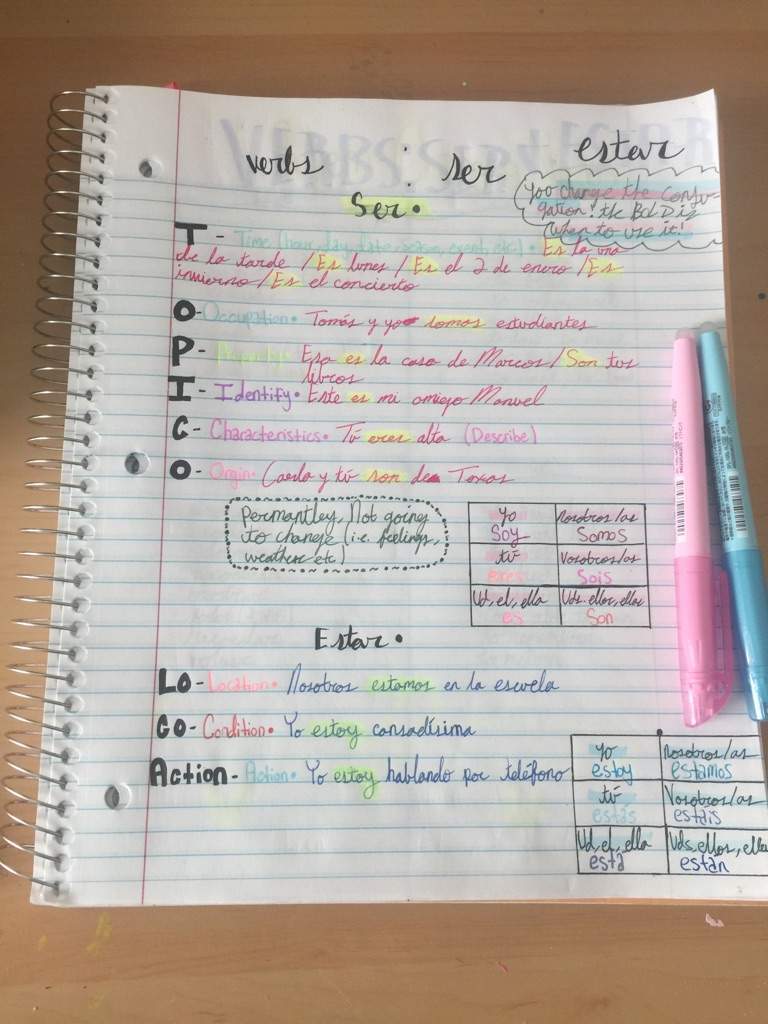 verbs : ser estar
You change the conju-
gation! the Bol Diz
When to use it!
Ser.
T - Time (hour, day, date, season, event, etc.) • Es la una
de la tarde / Es lunes / Es el 2 de enero / Es
invierno / Es el concierto
O - Occupation • Tomás y yo somos estudiantes
P - Property • Esa es la casa de Marcos / Son tus
libros
I - Identify • Este es mi amigo Manuel
C - Characteristics • Tú eres alta (Describe)
O - Orgin • Carla y tú son de Texas
Permantley, Not going
to change (i.e. feelings,
weather etc)
yo nosotros/as
Soy Somos
tú Vosotros/as
eres Sois
Ud, el, ella Uds. ellos, ellas
es Son
Estar.
LO - Location • Nosotros estamos en la escuela
CO - Condition • Yo estoy cansadísima
Action - Action • Yo estoy hablando por teléfono
yo nosotros/as
estoy estamos
tú Vosotros/as
estás estáis
Ud, el, ella Uds, ellos, ellas
está están